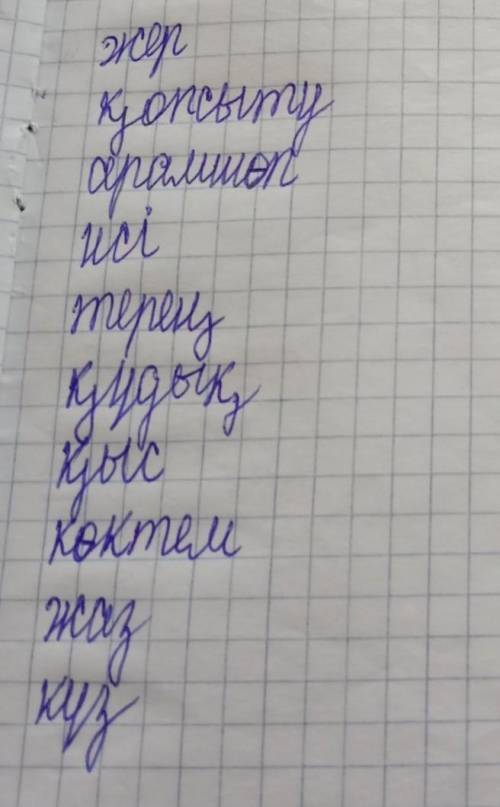 жер
қопсыту
арамшөп
исі
терең
құдық
қыс
көктем
жаз
күз